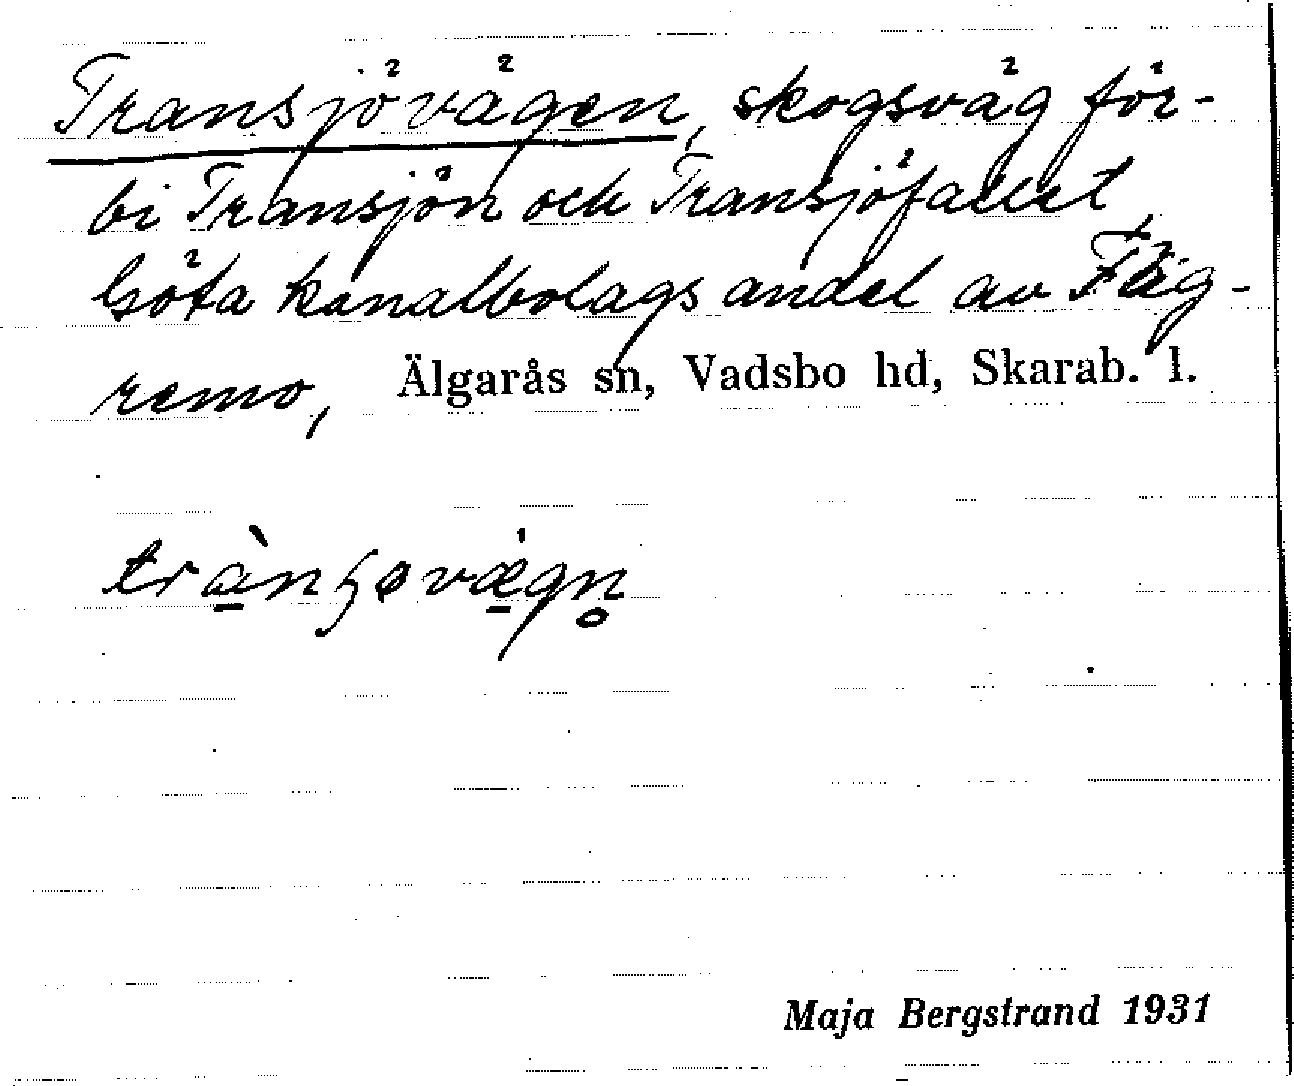 Transjövägen, skogsväg för-
bi Transjön och Transjöfallet
Göta kanalbolags andel av Fäg-
remo, Älgarås sn, Vadsbo hd, Skarab. l.
Maja Bergstrand 1931